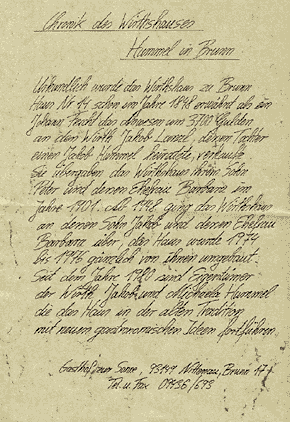 Chronik des Wirtshauses
Hummel in Brunn
Urkundlich wurde das Wirtshaus zu Brunn
Haus Nr 14 schon im Jahre 1848 erwähnt als ein
Johann das Anwesen um 3700 Gulden
an den Wirth Jakob verkaufte, deren Tochter
einen Jakob Hummel
Sie übergaben das Wirtshaus ihrem Sohn
Peter und deren Ehefrau Barbara im
Jahre 1901. 1948 ging das Wirtshaus
an deren Sohn Jakob und deren Ehefrau
Barbara über, das Haus wurde 1974
bis 1976 gänzlich von ihnen umgebaut.
Seit dem Jahre 1980 sind Eigentümer
der Wirth Jakob und Michaela Hummel
die das Haus in der alten Tradition
mit neuen gastronomischen Ideen fortführen.
Gasthof zur Sonne, 93149 Nittenau, Brunn
Tel. u. Fax 09436/693